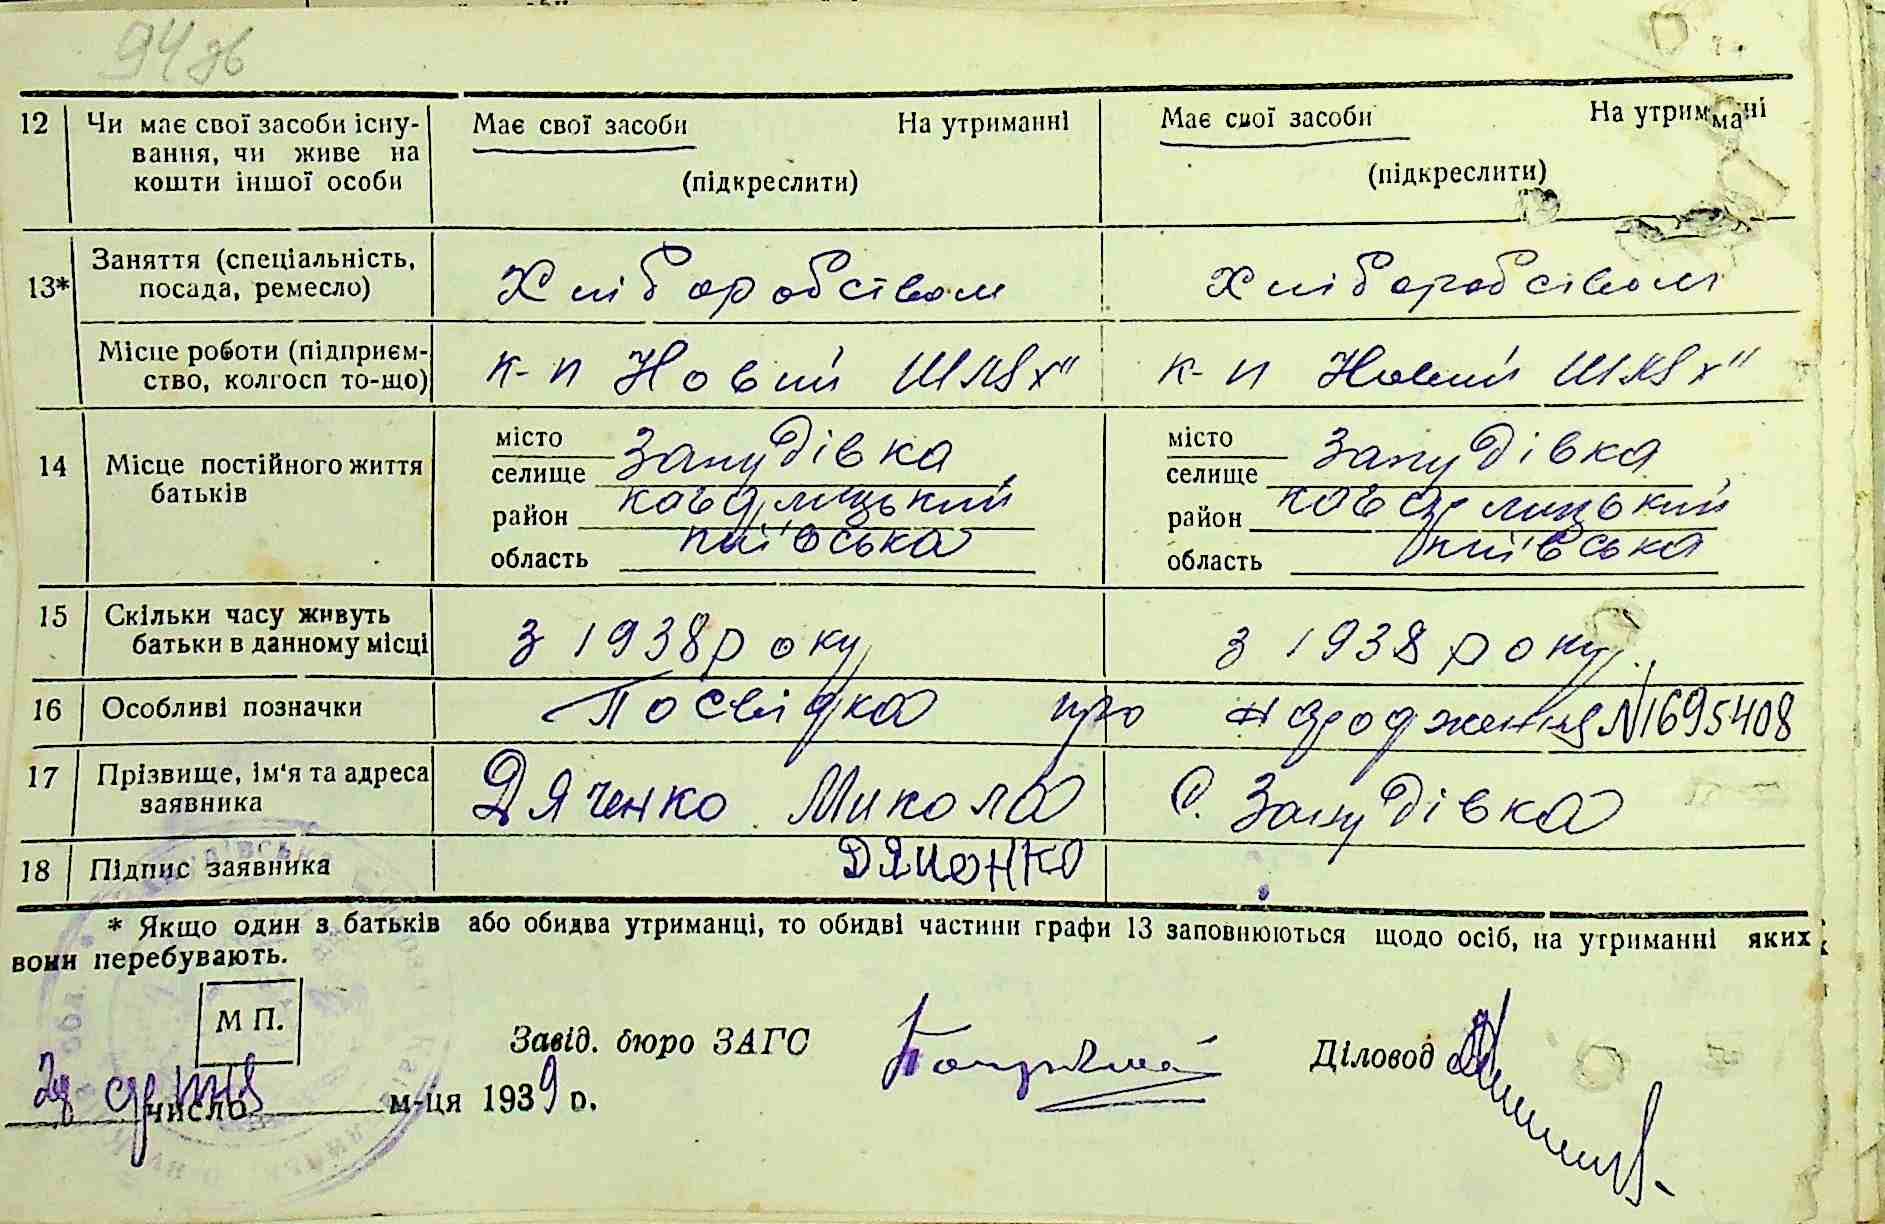 94 зв
12 Чи має свої засоби існу- Має свої засоби На утриманні Має свої засоби На утриманні
вання, чи живе на
кошти іншої особи (підкреслити) (підкреслити)
13* Заняття (спеціальність, Хліборобством Хліборобством
посада, ремесло)
Місце роботи (підприєм- к-п Новий Шлях" к-п Новий Шлях"
ство, колгосп то-що)
14 Місце постійного життя місто Занудівка місто Занудівка
батьків селище селище
район район
область київська область київська
15 Скільки часу живуть з 1938 року з 1938 року
батьки в данному місці
16 Особливі позначки Посвідка про народження №1695408
17 Прізвище, ім'я та адреса Дяченко Микола С. Занудівка
заявника
18 Підпис заявника Дяченко
* Якщо один з батьків або обидва утриманці, то обидві частини графи 13 заповнюються щодо осіб, на утриманні яких
вони перебувають.
М П.
Завід. бюро ЗАГС Діловод
число м-ця 1939 р.